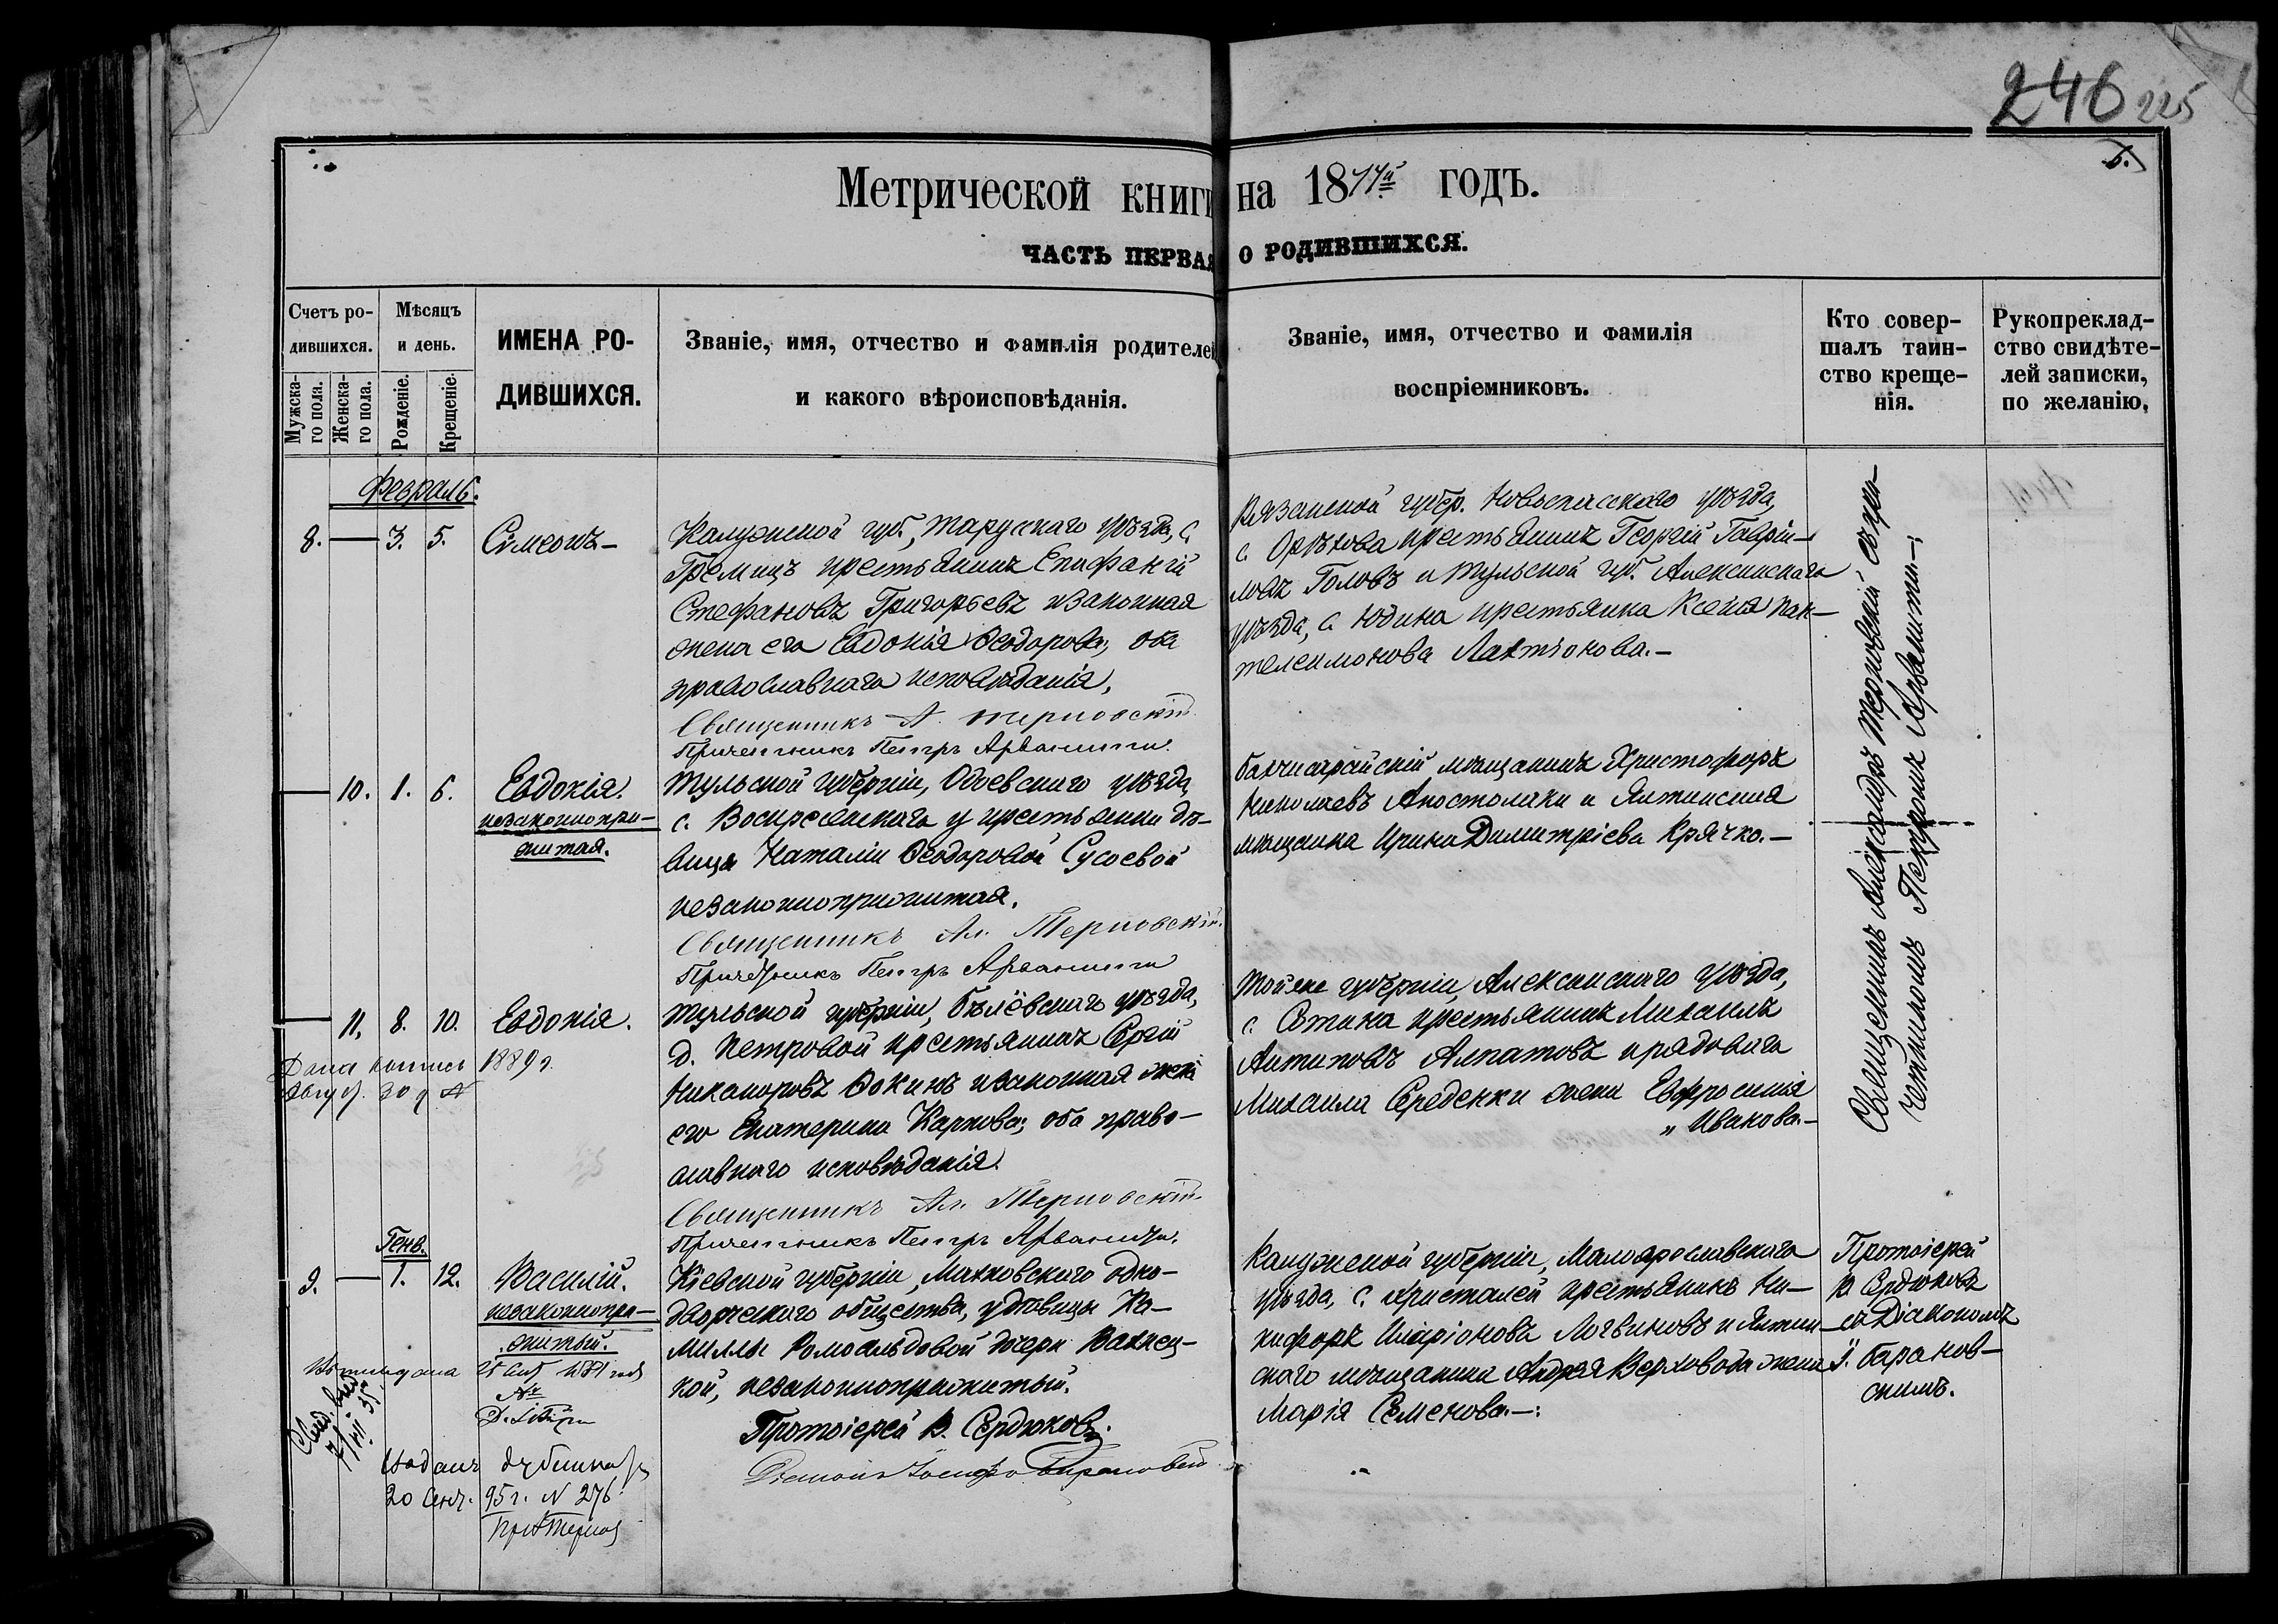 246 225
5.
Метрической книги на 1877й годъ.
ЧАСТЬ ПЕРВАЯ О РОДИВШИХСЯ.
Счетъ ро-
дившихся.
Мужска-
го пола.
Женска-
го пола.
Мѣсяцъ
и день.
Рожденіе.
Крещеніе.
ИМЕНА РО-
ДИВШИХСЯ.
Званіе, имя, отчество и фамилія родителей
и какого вѣроисповѣданія.
Званіе, имя, отчество и фамилія
воспріемниковъ.
Кто совер-
шалъ таин-
ство креще-
нія.
Рукопреклад-
ство свидѣте-
лей записки,
по желанію,
Февраль.
8. — 3. 5. Сѵмеонъ —
Калужской губ., Тарусскаго уѣзда, с.
Гремицъ крестьянинъ Епифаній
Стефановъ Григорьевъ и законная
жена его Евдокія Ѳеодорова, оба
православнаго исповѣданія.
Священникъ А. Терновскій
Причетникъ Петръ Арванити.
Рязанской губер. Новоспасскаго уѣзда,
с. Орѣхова крестьянинъ Георгій Гавріи-
ловъ Головъ и Тульской губ. Алексинскаго
уѣзда, с. Юдина крестьянка Ксенія Пан-
телеимонова Лактіонова. —
Священникъ Александръ Терновскій съ при-
четникомъ Петромъ Арванити —
— 10. 1. 6. Евдокія.
незаконнопри-
житая.
Тульской губерніи, Одоевскаго уѣзда
с. Воскресенскаго у крестьянки дѣ-
вицы Наталіи Ѳеодоровой Сусоевой
незаконноприжитая.
Священникъ Ал. Терновскій.
Причетникъ Петръ Арванити
Бахчисарайскій мѣщанинъ Христофоръ
Николаевъ Апостолаки и Ялтинская
мѣщанка Ирина Димитріева Крячко. —
— 11. 8. 10. Евдокія.
Дана выпись 1889 г.
Август. 30 д
Тульской губерніи, Бѣлёвскаго уѣзда,
д. Петровой крестьянинъ Сергій
Никаноровъ Ѳокинъ и законная жена
его Екатерина Карпова, оба право-
славнаго исповѣданія.
Священникъ Ал. Терновскій.
Причетникъ Петръ Арванити.
Тойже губерніи, Алексинскаго уѣзда,
с. Сотина крестьянинъ Михаилъ
Антиповъ Алпатовъ и рядоваго
Михаила Середенки жена Евфросинія
„ Иванова. —
Генв.
9. — 1. 12. Василій.
незаконнопри-
житый.
Кіевской губерніи, Махновскаго одно-
дворческаго общества, у дѣвицы Ка-
миллы Ромоальдовой дочери
кой, незаконноприжитый.
Протоіерей В. Сердюковъ.
Діаконъ Іосифъ Барановскій
Калужской губерніи, Малоярославскаго
уѣзда, с. Христалей крестьянинъ Ни-
кифоръ Иларіоновъ Логвиновъ и Ялтин-
скаго мѣщанина Андрея Верховода жена
Марія Семенова. —:
Протоіерей
В. Сердюковъ
съ Діакономъ
І. Баранов-
скимъ.
дана 25
20 Сент. 95 г. N 276